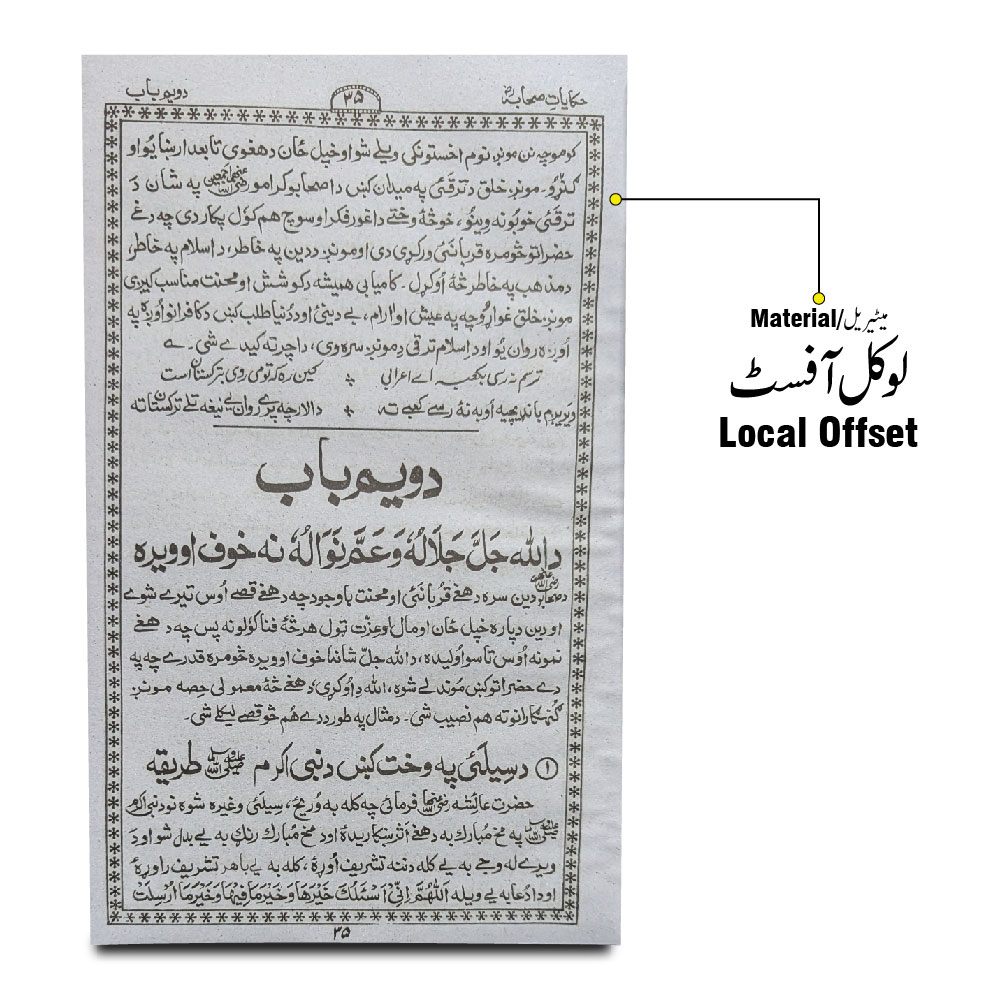 حکایاتِ صحابہؓ
۳۵
دویم باب
کوموچہ نن مونږه نوم اخستونکی ویلے شو او خپل ځان دهغوی تابعدار ښایو او
ګڼړو۔ مونږ خلق د ترقئ په میدان کښ د اصحابو کرامو په شان د
ترقئ خوبونه وینو، خو څه وختے دا غور فکر او سوچ هم کول پکار دی چه دغے
حضراتو څومره قربانئ ورکړی دی او مونږ د دین په خاطر، د اسلام په خاطر،
د مذهب په خاطر څه اوکړل۔ کامیابی همیشه د کوشش او محنت مناسب کیږی
مونږ خلق غواړو چه په عیش او آرام، بے دینئ او د دنیا طلب کښ د کافرانو اوږه په
اوږه روان یو او د اسلام ترقی دِ مونږ سره وی، دا چرته کیدے شی۔ ے
ترسم نه رسی بکعبه اے اعرابی ؞ کیں ره که تو می روی بترکستان است
ویریږم باندیچیه اوبه نۀ رسے کعبے ته ؞ دا لار چه پرے روان یے نیغه تلے ترکستان ته
دویم باب
د الله جَلَّ جَلَالُهٗ وَعَمَّ نَوَالُهٗ نه خوف او ویره
د صحابو دین سره د هغے قربانئ او محنت باوجود چه د هغے قصے اُوس تیرے شوے
او د دین دپاره خپل ځان او مال او عزت ټول هر څه فنا کولو نه پس چه د هغے
نمونه اُوس تاسو اولیده، د الله جلّ شانهٗ خوف او ویره څومره قدرے چه په
دے حضراتو کښ موندلے شوه، الله دِ اوکړی د هغے څه معمولی حِصه مونږ
ګنهګارانو ته هم نصیب شی۔ د مثال په طور د دے هُم څو قصے لیکلے شی۔
① د سیلئ په وخت کښ د نبی اکرم ﷺ طریقه
حضرت عائشه رضی الله عنها فرمائی چه کله به وُریځ، سیلئ وغیره شوه نو د نبی اکرم
ﷺ په مخ مُبارک به د هغے اثر ښکاریدۀ او د مخ مُبارک رنګ به یے بدل شو او د
ویرے له وجے به یے کله دننه تشریف اُوړۀ، کله به یے باهر تشریف راوړۀ
او دا دُعا به یے ویله اَللّٰهُمَّ اِنِّیْ اَسْئَلُكَ خَیْرَهَا وَخَیْرَ مَا فِیْهَا وَخَیْرَ مَا اُرْسِلَتْ
۳۵
Material/میٹیریل
لوکل آفسٹ
Local Offset